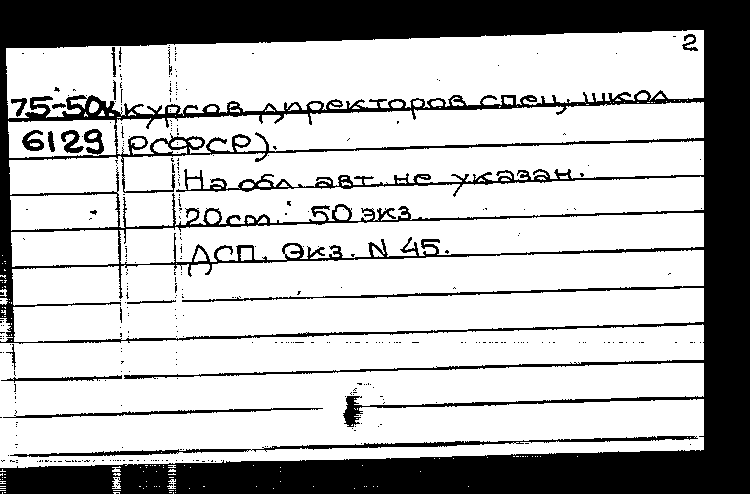 2
75-50к курсов директоров спец. школ
6129 РСФСР).
На обл. авт. не указан.
20 см. 50 экз.
ДСП. Экз. N 45.